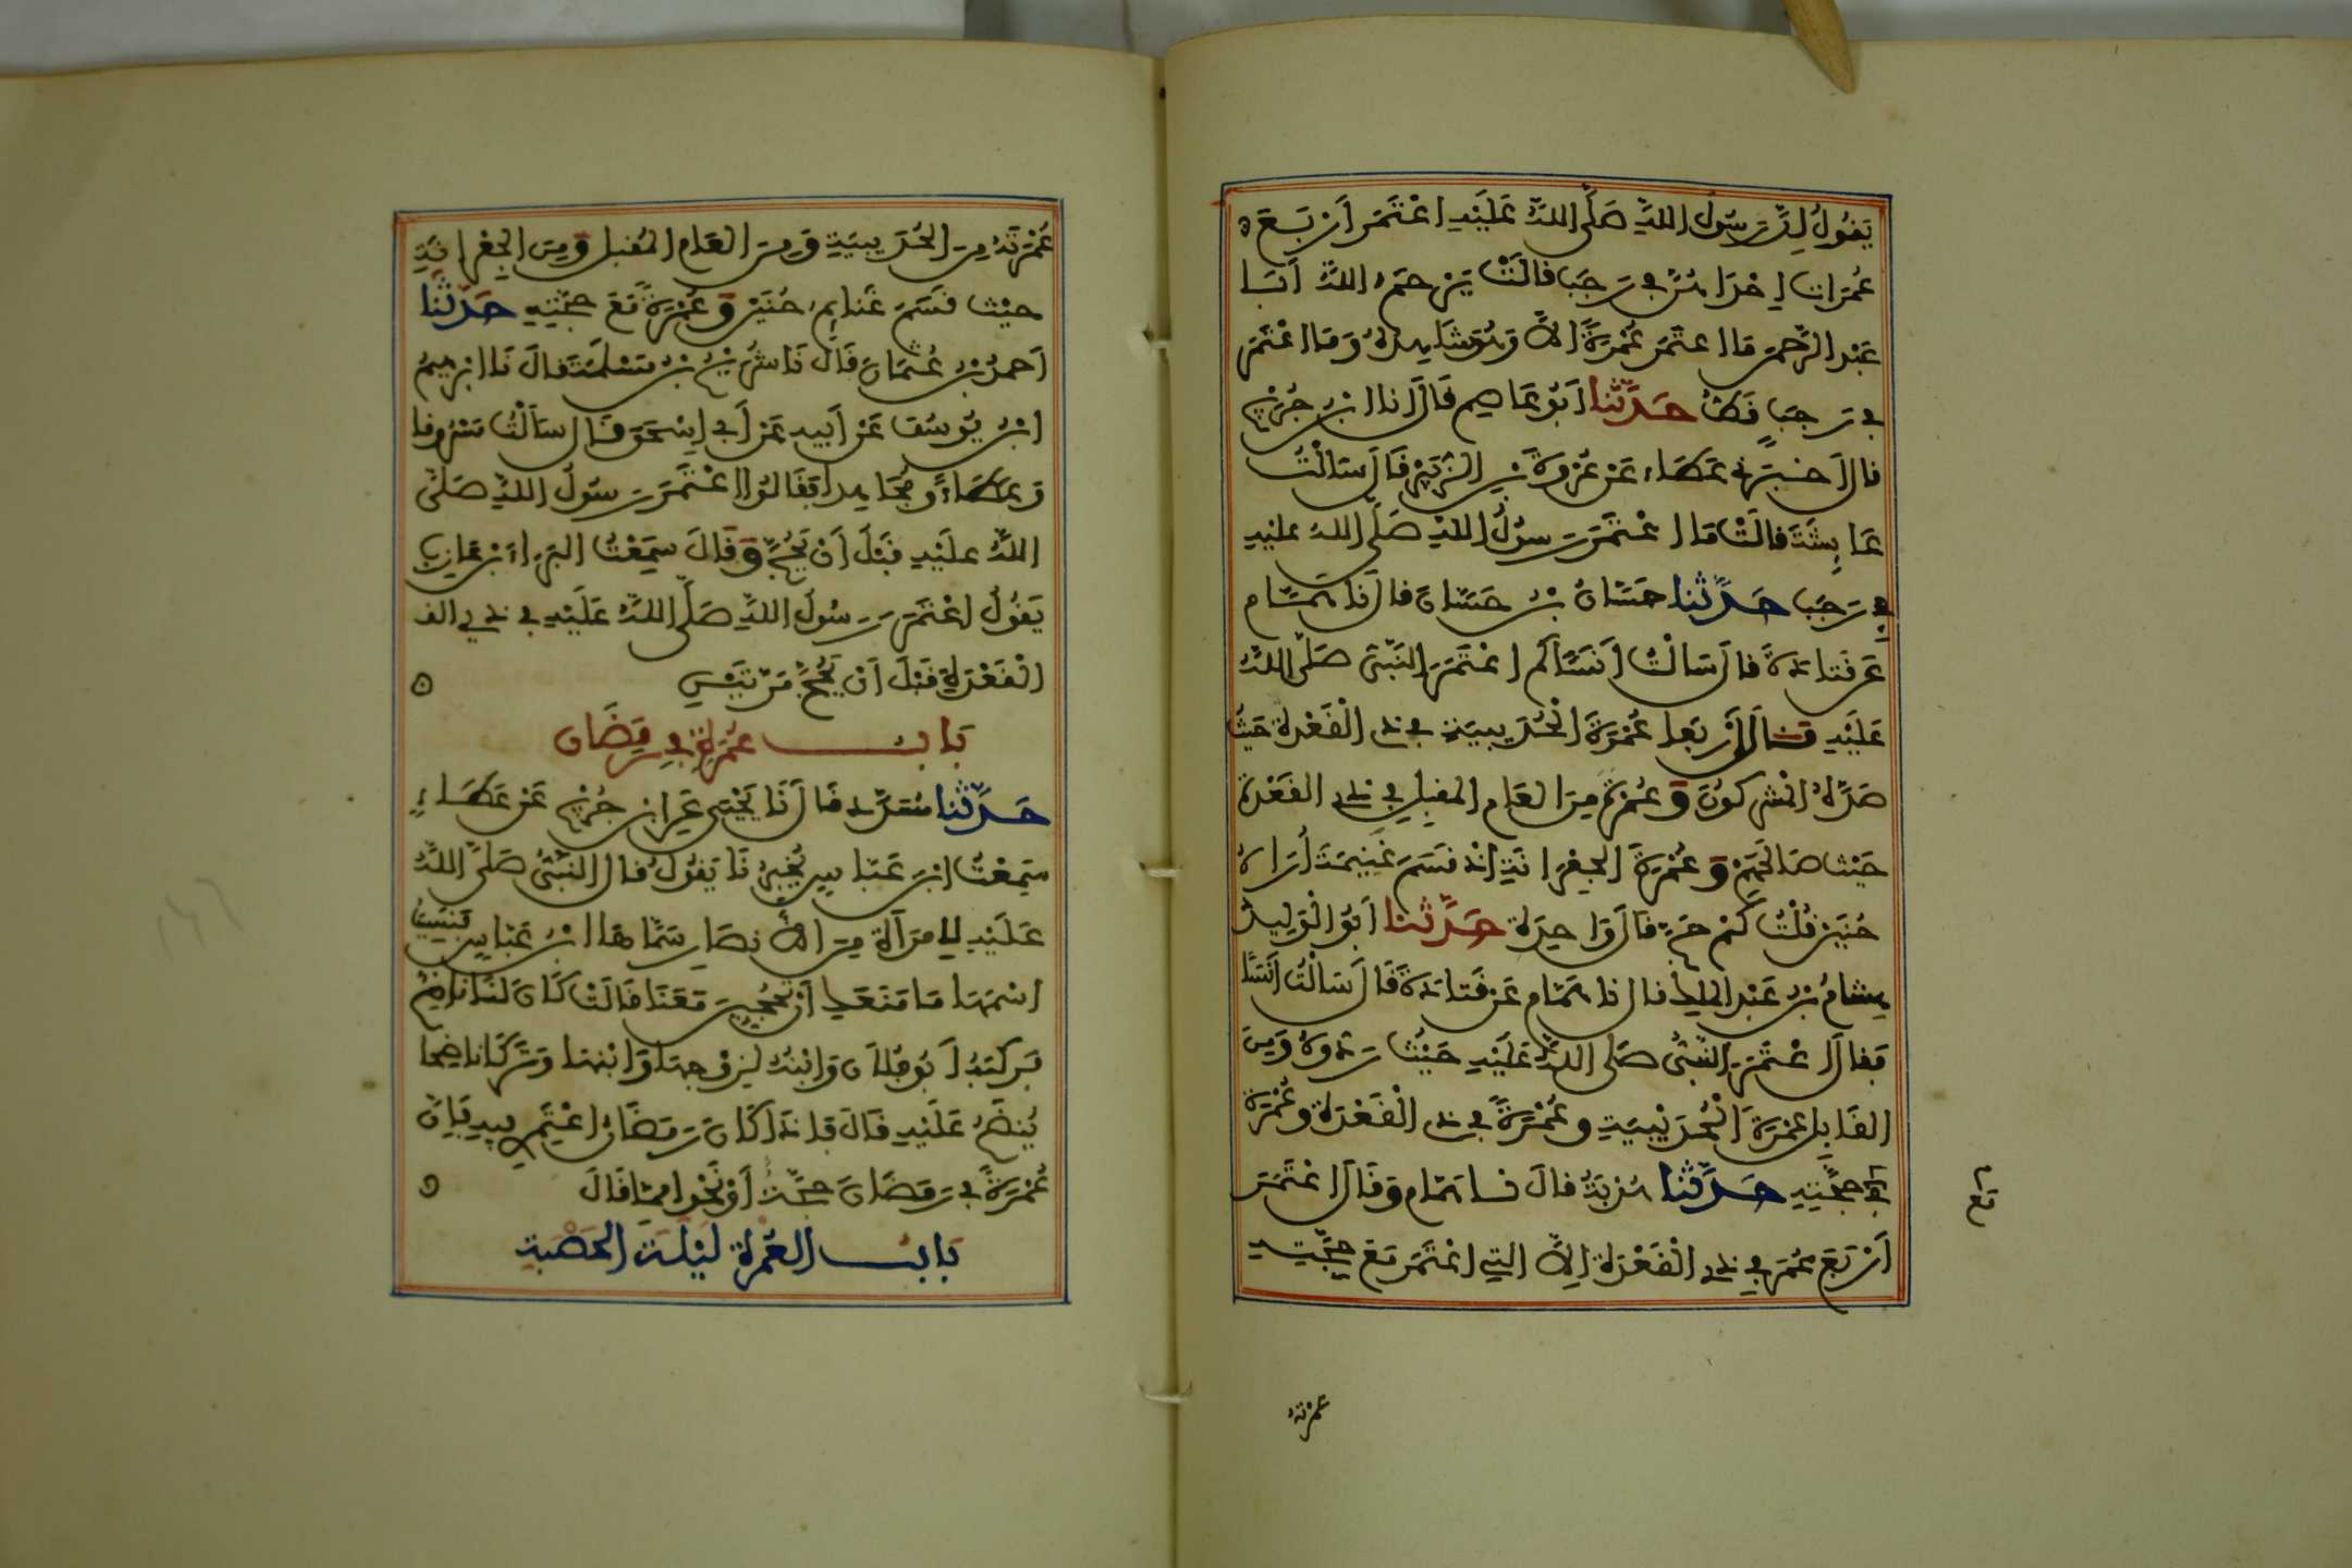 يَقُولُ إِنَّ رَسُولَ اللهِ صَلَّى اللهُ عَلَيْهِ اعْتَمَرَ أَرْبَعَ
عُمَرَاتٍ إِحْدَاهُنَّ فِي رَجَبٍ قَالَتْ يَرْحَمُ اللهُ أَبَا
عَبْدِ الرَّحْمَنِ مَا اعْتَمَرَ عُمْرَةً إِلاَّ وَهُوَ شَاهِدُهُ وَمَا اعْتَمَرَ
فِي رَجَبٍ قَطُّ حَدَّثَنَا أَبُو عَاصِمٍ قَالَ أنا ابْنُ جُرَيْجٍ
قَالَ أَخْبَرَنِي عَطَاءٌ عَنْ عُرْوَةَ بْنِ الزُّبَيْرِ قَالَ سَأَلْتُ
عَائِشَةَ قَالَتْ مَا اعْتَمَرَ رَسُولُ اللهِ صَلَّى اللهُ عَلَيْهِ
فِي رَجَبٍ حَدَّثَنَا حَسَّانُ بْنُ حَسَّانَ قَالَ نَا هَمَّامٌ
عَنْ قَتَادَةَ قَالَ سَأَلْتُ أَنَسًا كَمِ اعْتَمَرَ النَّبِيُّ صَلَّى اللهُ
عَلَيْهِ قَالَ أَرْبَعًا عُمْرَةَ الْحُدَيْبِيَةِ فِي ذِي الْقَعْدَةِ حَيْثُ
صَدَّهُ الْمُشْرِكُونَ وَعُمْرَةً مِنَ الْعَامِ الْمُقْبِلِ فِي ذِي الْقَعْدَةِ
حَيْثُ صَالَحَهُمْ وَعُمْرَةَ الْجِعْرَانَةِ إِذْ قَسَمَ غَنِيمَةَ أُرَاهُ
حُنَيْنٍ قُلْتُ كَمْ حَجَّ قَالَ وَاحِدَةً حَدَّثَنَا أَبُو الْوَلِيدِ
هِشَامُ بْنُ عَبْدِ الْمَلِكِ قَالَ نَا هَمَّامٌ عَنْ قَتَادَةَ قَالَ سَأَلْتُ أَنَسًا
فَقَالَ اعْتَمَرَ النَّبِيُّ صَلَّى اللهُ عَلَيْهِ حَيْثُ رَدُّوهُ وَمِنَ
الْقَابِلِ عُمْرَةَ الْحُدَيْبِيَةِ وَعُمْرَةً فِي ذِي الْقَعْدَةِ وَعُمْرَةً
حَجَّتِهِ حَدَّثَنَا هُدْبَةُ قَالَ نَا هَمَّامٌ وَقَالَ اعْتَمَرَ
أَرْبَعَ عُمَرٍ فِي ذِي الْقَعْدَةِ إِلاَّ الَّتِي اعْتَمَرَ مَعَ حَجَّتِهِ
مَعَ
عُمْرَتَهُ
عُمْرَتَهُ مِنَ الْحُدَيْبِيَةِ وَمِنَ الْعَامِ الْمُقْبِلِ وَمِنَ الْجِعْرَانَةِ
حَيْثُ قَسَمَ غَنَائِمَ حُنَيْنٍ وَعُمْرَةً مَعَ حَجَّتِهِ حَدَّثَنَا
أَحْمَدُ بْنُ عُثْمَانَ قَالَ نَا شُرَيْحُ بْنُ مَسْلَمَةَ قَالَ نَا إِبْرَهِيمُ
ابْنُ يُوسُفَ عَنْ أَبِيهِ عَنْ أَبِي إِسْحَقَ قَالَ سَأَلْتُ مَسْرُوقًا
وَعَطَاءً وَمُجَاهِدًا فَقَالُوا اعْتَمَرَ رَسُولُ اللهِ صَلَّى
اللهُ عَلَيْهِ قَبْلَ أَنْ يَحُجَّ وَقَالَ سَمِعْتُ الْبَرَاءَ بْنَ عَازِبٍ
يَقُولُ اعْتَمَرَ رَسُولُ اللهِ صَلَّى اللهُ عَلَيْهِ فِي ذِي الق
الْقَعْدَةِ قَبْلَ أَنْ يَحُجَّ مَرَّتَيْنِ
بَابُ عُمْرَةٍ فِي رَمَضَانَ
حَدَّثَنَا مُسَدَّدٌ قَالَ نَا يَحْيَى عَنِ ابْنِ جُرَيْجٍ عَنْ عَطَاءٍ
سَمِعْتُ ابْنَ عَبَّاسٍ يُخْبِرُنَا يَقُولُ قَالَ النَّبِيُّ صَلَّى اللهُ
عَلَيْهِ لِامْرَأَةٍ مِنَ الأَنْصَارِ سَمَّاهَا ابْنُ عَبَّاسٍ فَنَسِيتُ
اسْمَهَا مَا مَنَعَكِ أَنْ تَحُجِّينَ مَعَنَا قَالَتْ كَانَ لَنَا نَاضِحٌ
فَرَكِبَهُ أَبُو فُلَانٍ وَابْنُهُ لِزَوْجِهَا وَابْنِهَا وَتَرَكَ نَاضِحًا
نَنْضَحُ عَلَيْهِ قَالَ فَإِذَا كَانَ رَمَضَانُ اعْتَمِرِي فِيهِ فَإِنَّ
عُمْرَةً فِي رَمَضَانَ حَجَّةٌ أَوْ نَحْوًا مِمَّا قَالَ
بَابُ الْعُمْرَةِ لَيْلَةَ الْحَصْبَةِ